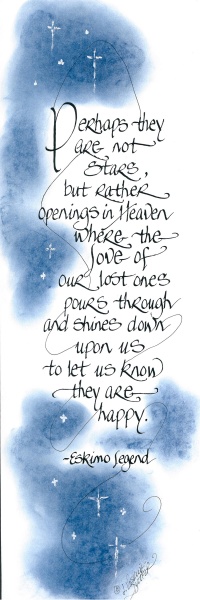 Perhaps they
are not
stars,
but rather
openings in Heaven
where the
love of
our lost ones
pours through
and shines down
upon us
to let us know
they are
happy.
-Eskimo Legend